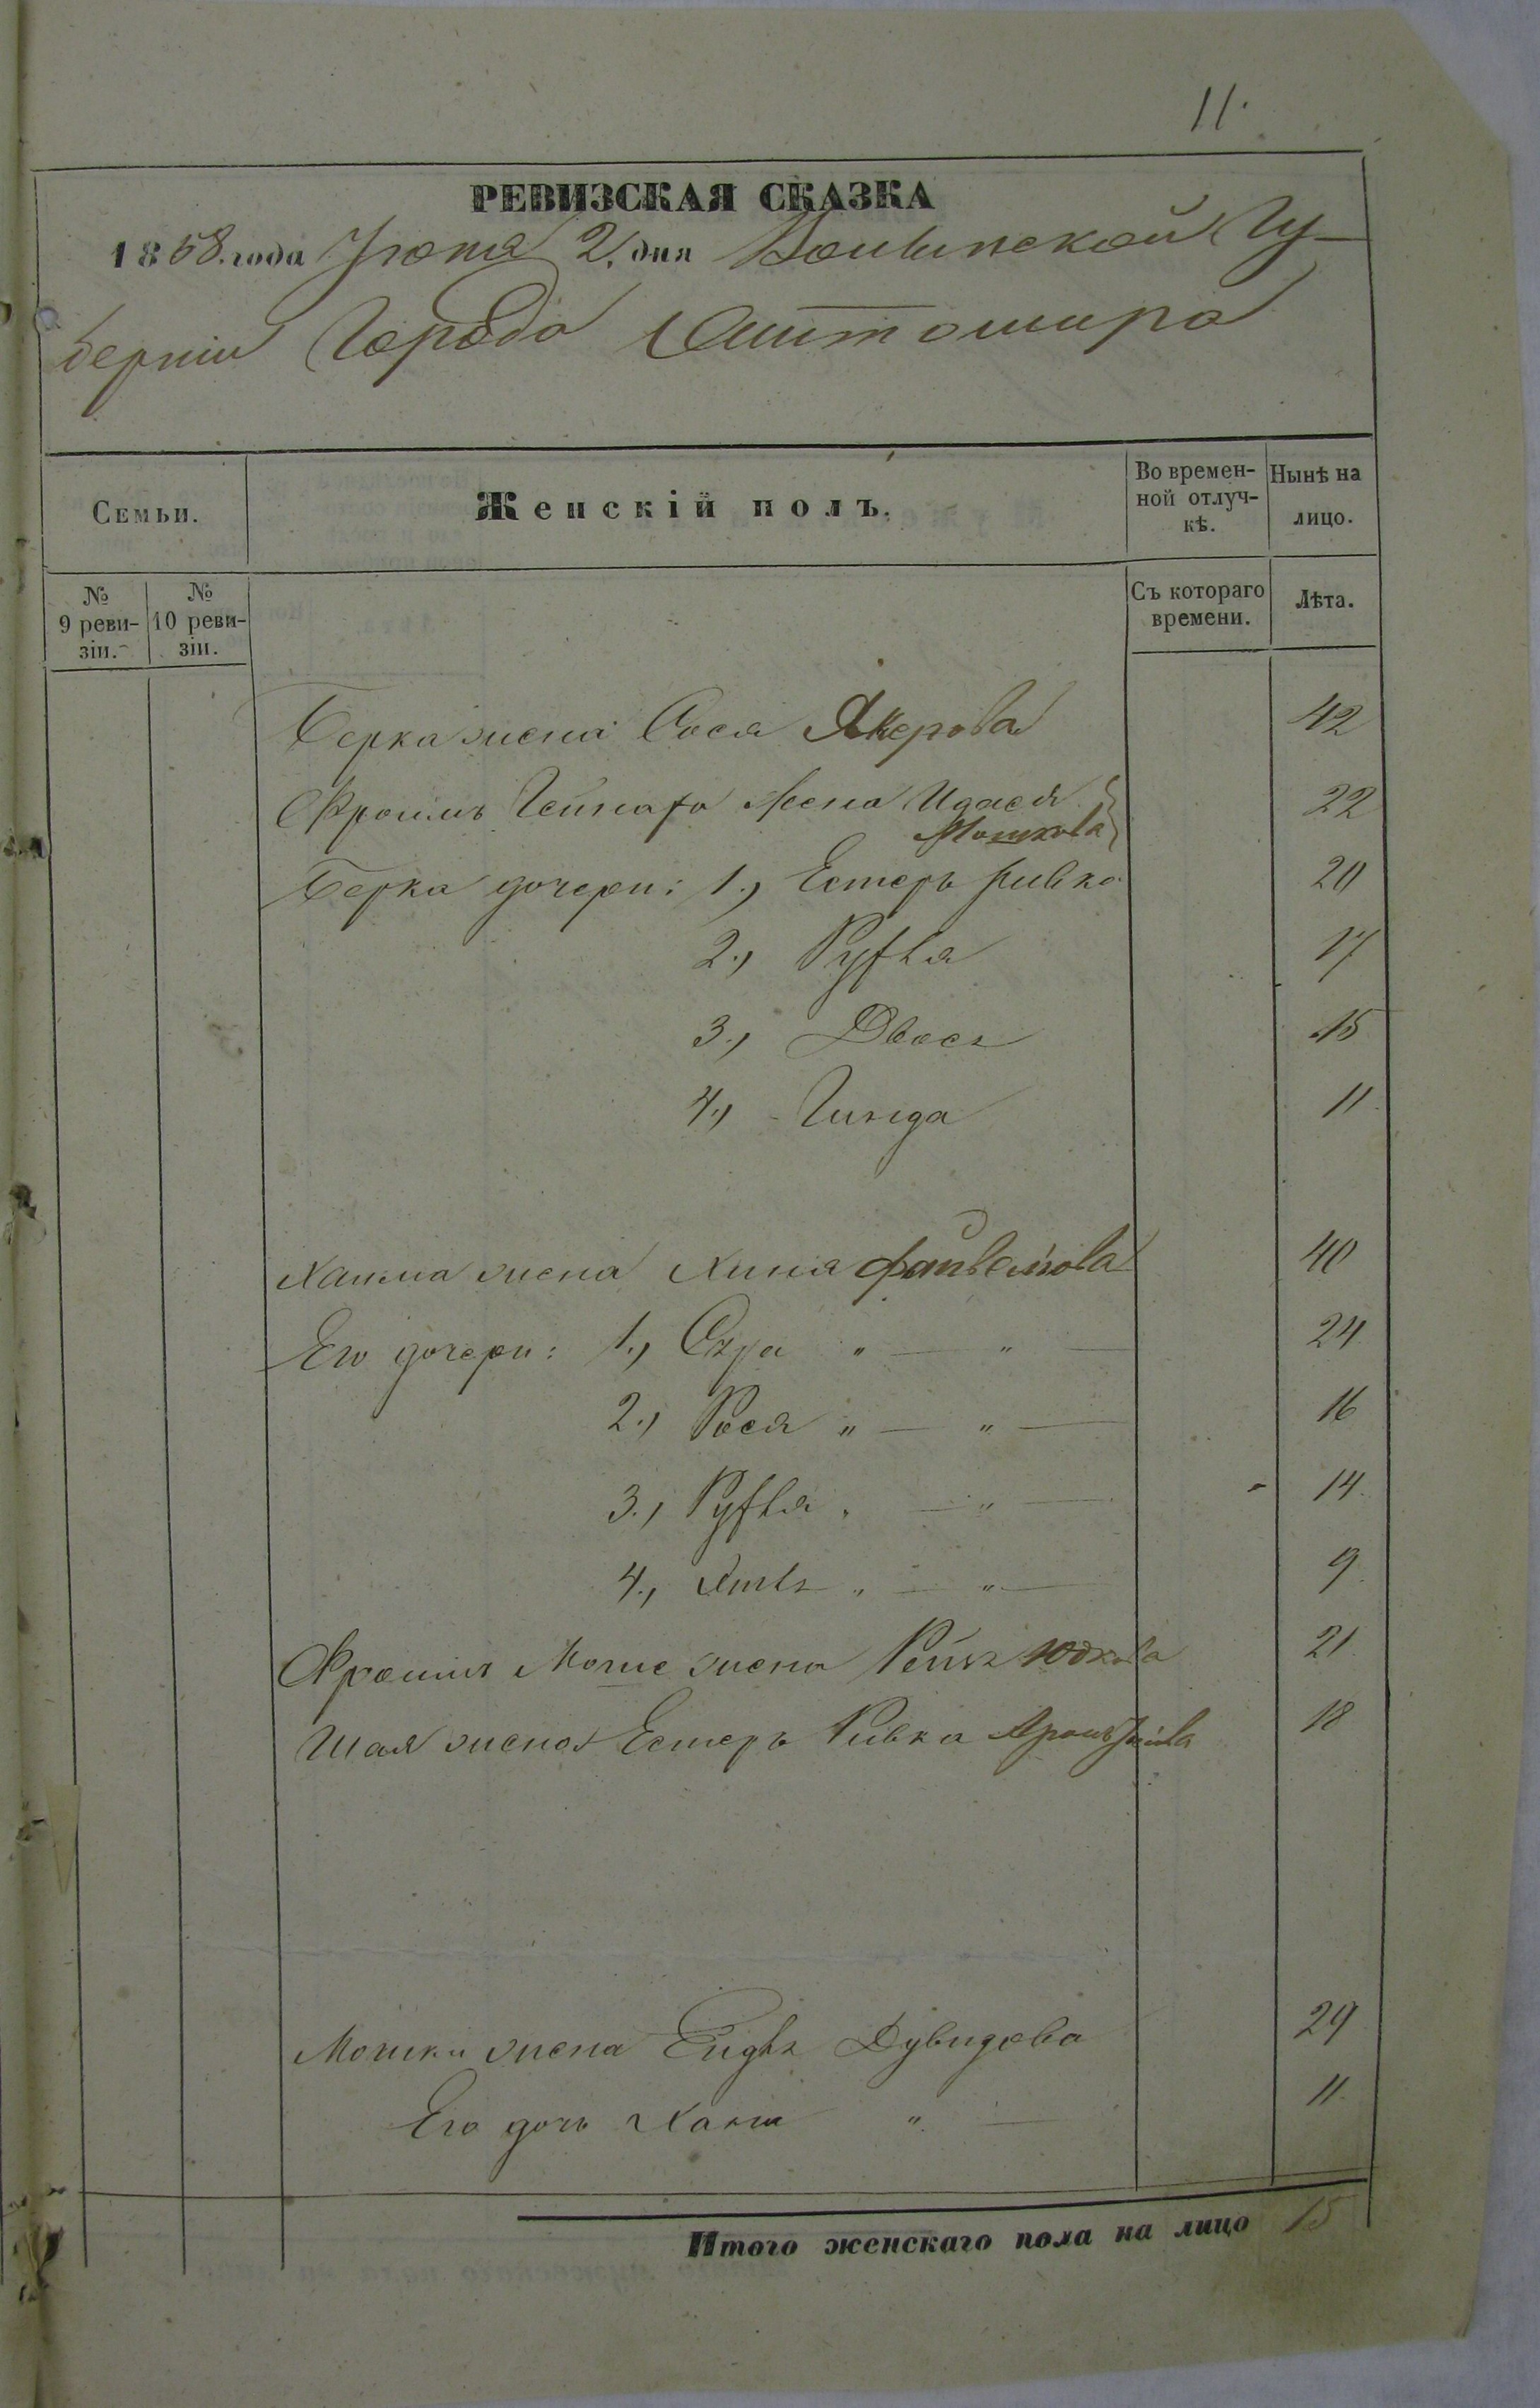 11.
РЕВИЗСКАЯ СКАЗКА
1858 года Июня 2 дня Волынской Гу-
берніи Города Житомира
Семьи.
Женскій полъ.
Во времен-
ной отлуч-
кѣ.
Нынѣ на
лицо.
№
9 реви-
зіи.
№
10 реви-
зіи.
Съ котораго
времени.
Лѣта.
Берка жена Сося Якерова 42
Фроимъ жена Идася 22
Мошкова
Берка дочери: 1., Естеръ Ривка 20
2., Рухля 17
3., Двося 15
4., Гинда 11
Хаима жена Хиня 40
Его дочери: 1., Сура " — " — 24
2., Рося " — " — 16
3., Рухля " — " — 14
4., " — " — 9
Фроимъ Моше жена Юдкова 21
Шая жена Естеръ Ривка 18
Мошки жена Дувидова 29
Его дочь Хана " — 11
Итого женскаго пола на лицо 15